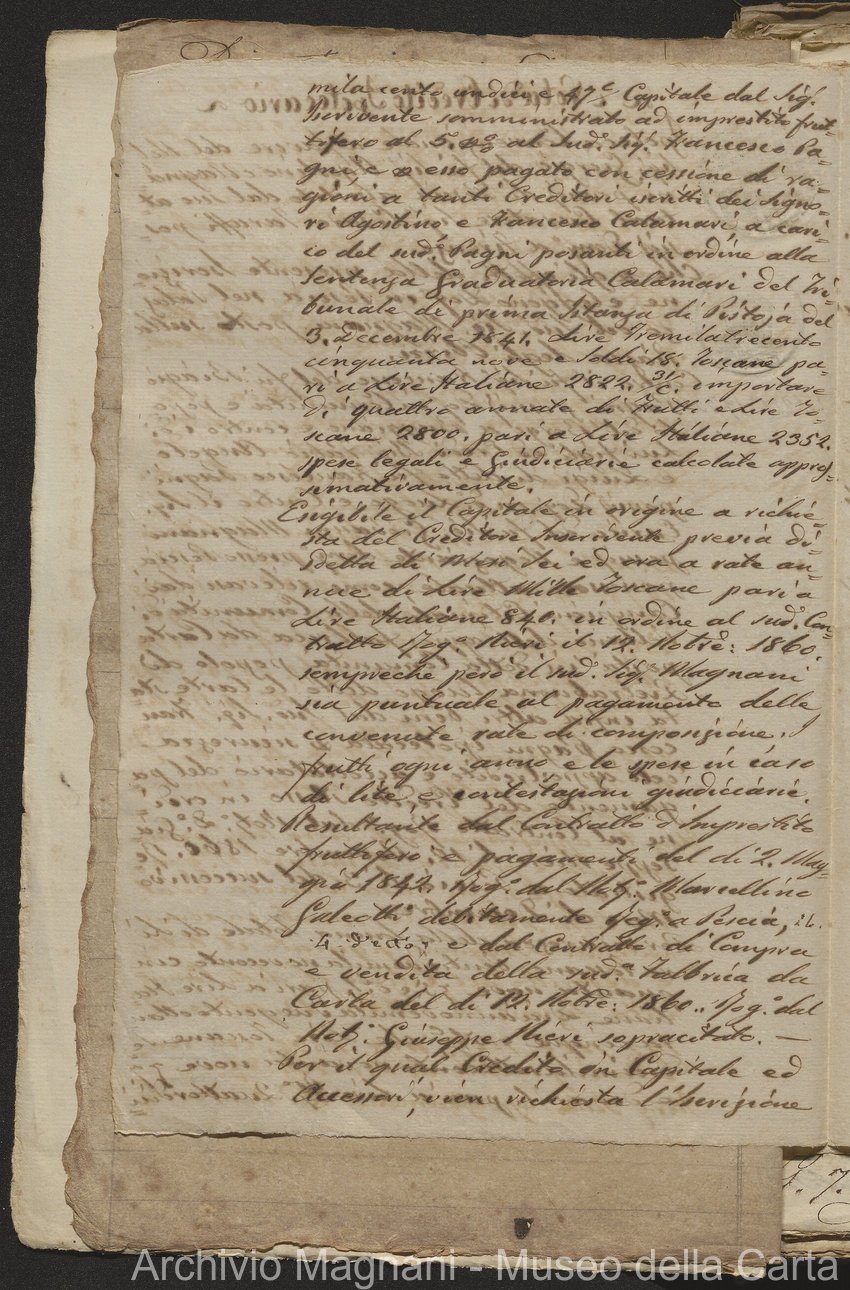 mila cento undici e 47c Capitale dal Sigr.
Iscrivente somministrato ad imprestito frut-
tifero al 5. p% al Sudo. Sigr. Francesco Pa-
gni, e esso pagato con cessione di ra-
gioni a tanti Creditori iscritti dei Signo-
ri Agostino e Francesco Calamari, a cari-
co del sudo. Pagni posanti in ordine alla
Sentenza Graduatoria Calamari del Tri-
bunale di prima Istanza di Pistoja del
3. Decembre 1841. Lire Tremilatrecento
cinquanta nove e Soldi 18. Toscane pa-
ri a Lire Italiane 2822. 31/c. importare
di quattro annate di Frutti e Lire To-
scane 2800. pari a Lire Italiane 2352.
spese legali e giudiciarie calcolate appros-
simativamente.
Esigibile il Capitale in origine a richie-
sta del Creditore Inscrivente previa di-
sdetta di Mesi Sei ed ora a rate an-
nue di Lire Mille Toscane pari a
Lire Italiane 840. in ordine al sudo. Con-
tratto Rogo. Nieri il 12. Nobre: 1860.
sempreché però il sudo. Sigr. Magnani
sia puntuale al pagamento delle
convenute rate di composizione. I
frutti ogni anno e le spese in caso
di lite, e contestazioni giudiciarie.
Resultante dal Contratto d'Imprestito
fruttifero e pagamenti del di 2. Mag-
gio 1842. Rogo. dal Notj. Marcellino
Galeotti debitamente Rego. a Pescia, il
4. do. e dal Contratto di Compra
e vendita della suda. Fabbrica da
Carta del di 12. Nobre: 1860. Rogo. dal
Notj. Giuseppe Nieri sopracitato. —
Per il qual Credito in Capitale ed
Accessori, vien richiesta l'Iscrizione
Archivio Magnani - Museo della Carta